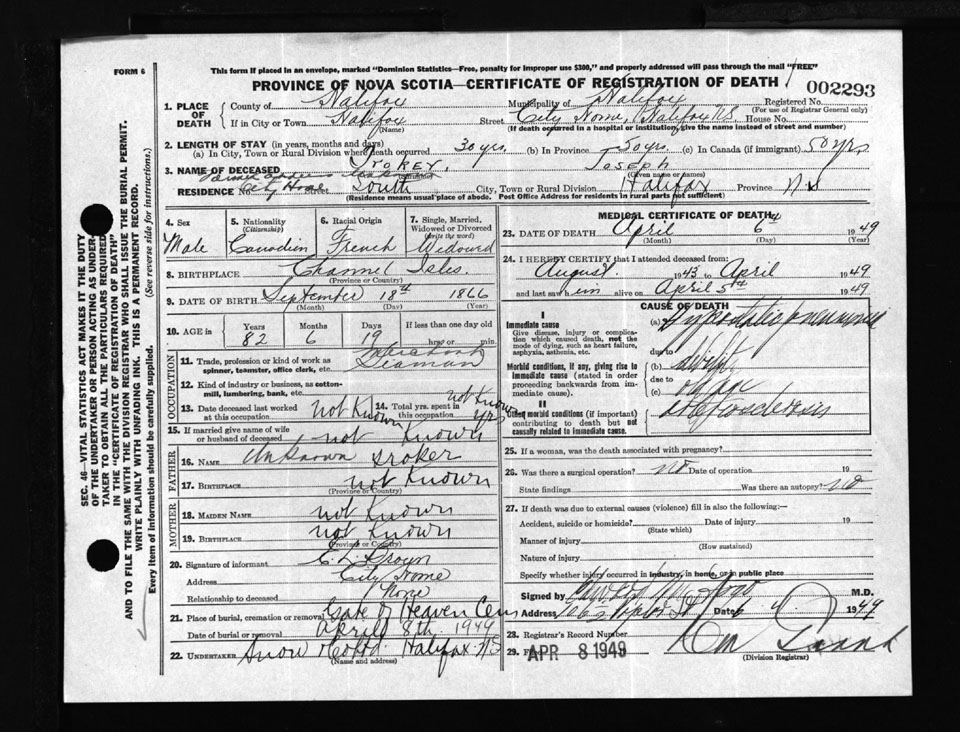 FORM 6
This form if placed in an envelope, marked "Dominion Statistics—Free, penalty for improper use $300," and properly addressed will pass through the mail "FREE"
PROVINCE OF NOVA SCOTIA—CERTIFICATE OF REGISTRATION OF DEATH
002293
1. PLACE OF DEATH
County of Halifax Municipality of Halifax Registered No.
(For use of Registrar General only)
If in City or Town Halifax Street City Home, Halifax NS House No.
(Name) (If death occurred in a hospital or institution, give the name instead of street and number)
2. LENGTH OF STAY (in years, months and days)
(a) In City, Town or Rural Division where death occurred 30 yrs. (b) In Province 50 yrs. (c) In Canada (if immigrant) 50 yrs
3. NAME OF DECEASED Joseph
(Given or names)
RESIDENCE No. City Home South City, Town or Rural Division Halifax Province NS
(Residence means usual place of abode. Post Office Address for residents in rural parts not sufficient)
4. Sex
Male
5. Nationality
(Citizenship)
Canadian
6. Racial Origin
French
7. Single, Married, Widowed or Divorced
(write the word)
Widowed
8. BIRTHPLACE Channel Isles.
(Province or Country)
9. DATE OF BIRTH September 18th 1866
(Month) (Day) (Year)
10. AGE in
Years Months Days If less than one day old
82 6 19 hrs. or min.
OCCUPATION
11. Trade, profession or kind of work as spinner, teamster, office clerk, etc.
Seaman
12. Kind of industry or business, as cotton-mill, lumbering, bank, etc.
13. Date deceased last worked at this occupation not known
14. Total yrs. spent in this occupation not known yrs
15. If married give name of wife or husband of deceased not known
FATHER
16. NAME Unknown
17. BIRTHPLACE not known
(Province or Country)
MOTHER
18. MAIDEN NAME not known
19. BIRTHPLACE not known
(Province or Country)
20. Signature of informant
Address City Home
Relationship to deceased None
21. Place of burial, cremation or removal Gate of Heaven Cem
Date of burial or removal April 8th 1949
22. UNDERTAKER Snow & Co Ltd. Halifax NS
(Name and address)
MEDICAL CERTIFICATE OF DEATH
23. DATE OF DEATH April 6th 1949
(Month) (Day) (Year)
24. I HEREBY CERTIFY that I attended deceased from:
August 1943 to April 1949
and last saw him alive on April 5th 1949
CAUSE OF DEATH
I
Immediate cause
Give disease, injury or complication which caused death, not the mode of dying, such as heart failure, asphyxia, asthenia, etc.
(a) Hypostatic pneumonia
due to
Morbid conditions, if any, giving rise to immediate cause (stated in order proceeding backwards from immediate cause).
(b)
due to
(c) old age
II
Other morbid conditions (if important) contributing to death but not causally related to immediate cause.
25. If a woman, was the death associated with pregnancy?
26. Was there a surgical operation? no Date of operation 19
State findings Was there an autopsy? no
27. If death was due to external causes (violence) fill in also the following:—
Accident, suicide or homicide? Date of injury 19
(State which)
Manner of injury
(How sustained)
Nature of injury
Specify whether injury occurred in industry, in home, or in public place
Signed by M.D.
Address Date 1949
28. Registrar's Record Number
29. APR 8 1949
(Division Registrar)
SEC. 46—VITAL STATISTICS ACT MAKES IT THE DUTY OF THE UNDERTAKER OR PERSON ACTING AS UNDERTAKER TO OBTAIN ALL THE PARTICULARS REQUIRED IN THE "CERTIFICATE OF REGISTRATION OF DEATH" AND TO FILE THE SAME WITH THE DIVISION REGISTRAR WHO SHALL ISSUE THE BURIAL PERMIT.
WRITE PLAINLY WITH UNFADING INK. THIS IS A PERMANENT RECORD.
Every item of information should be carefully supplied. (See reverse side for instructions.)